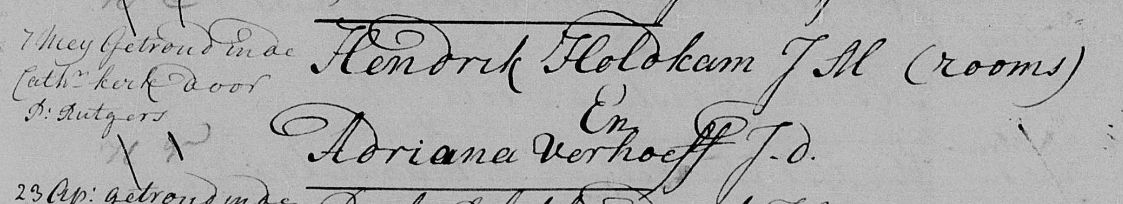 7 Mey Getroud in de
Cath:n kerk door
P: Rutgers
Hendrik Holdkam J M (rooms)
En
Adriana verhoeff J. d.
23 Ap: getroud in de